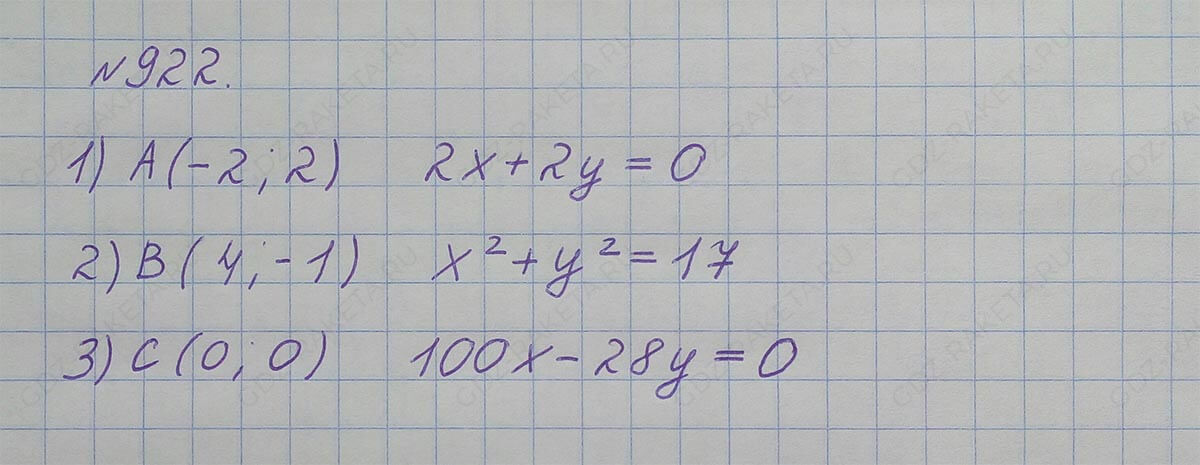 №922.
1) A(-2; 2) 2x+2y = 0
2) B(4; -1) x²+y²=17
3) C(0; 0) 100x-28y=0
GDZ-RAKETA.RU